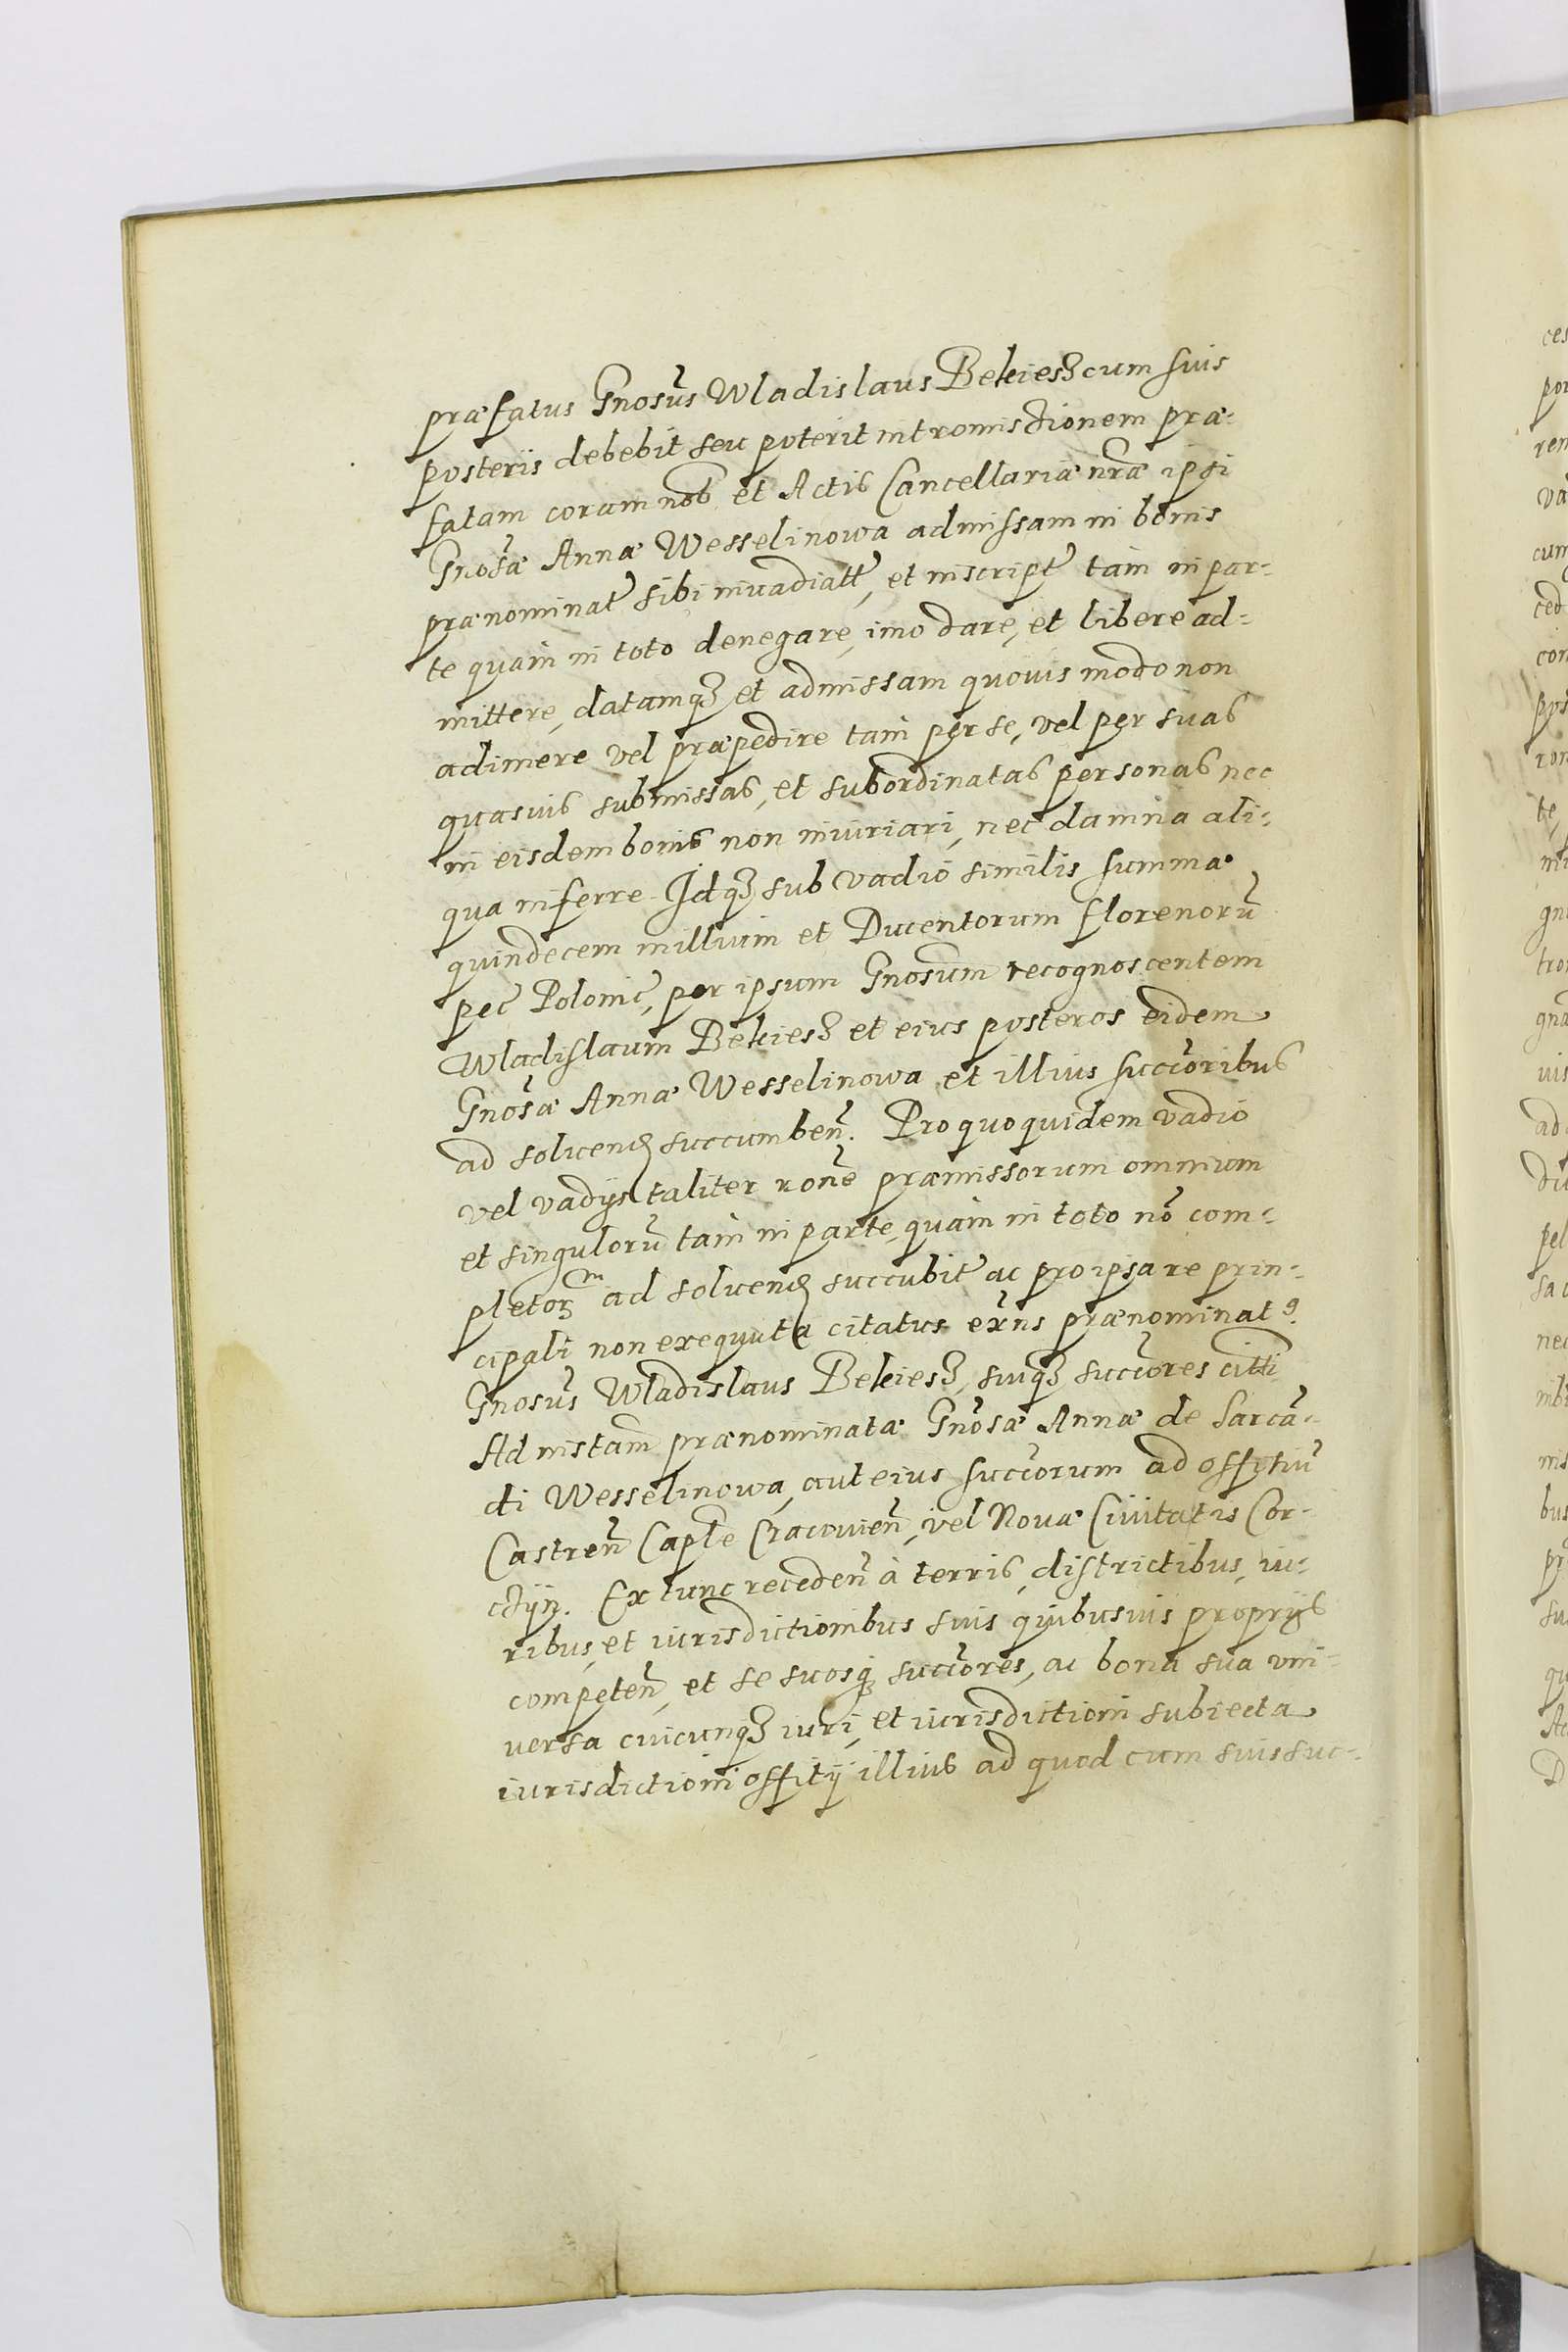 præfatus Gnosus Wladislaus Bekiesz cum suis
posteris debebit seu poterit intromissionem præ-
fatam coram nob et Actis Cancellariæ nræ ipsi
Gnosæ Annæ Wesselinowa admissam in bonis
prænominat sibi invadiatt, et inscript tam in par-
te quam in toto denegare, imo dare, et libere ad-
mittere, datamq3 et admissam quovis modo non
adimere vel præpedire tam per se, vel per suas
quasvis submissas, et subordinatas personas nec
in eisdem bonis non iniuriari, nec damna ali-
qua inferre. Idq3 sub vadio similis summæ
quindecem millium et Ducentorum florenorū
pec Polonic, per ipsum Gnosum recognoscentem
Wladislaum Bekiesz et eius posteros eidem
Gnosæ Annæ Wesselinowa et illius succoribus
ad solvend succumben. Pro quo quidem vadio
vel vadijs taliter rone præmissorum omnium
et singulorū tam in parte, quam in toto nō com-
pletorz ad solvend succubit ac pro ipsa re prin-
cipali non exequuta citatus exns prænominat9
Gnosus Wladislaus Bekiesz, suiq3 succores citti
Ad instam prænominatæ Gnosæ Annæ de Sarcā-
di Wesselinowa, aut eius succorum ad offitiū
Castren Capłe Cracovien, vel Novæ Civitatis Cor-
czÿn. Ex tunc receden à terris, districtibus, iu-
ribus, et iurisdictionibus suis quibusvis proprijs
competen, et se suosq3 succores, ac bona sua uni-
versa cuicunq3 iuri, et iurisdictioni subiecta
iurisdictioni offitij illius ad quod cum suis suc-